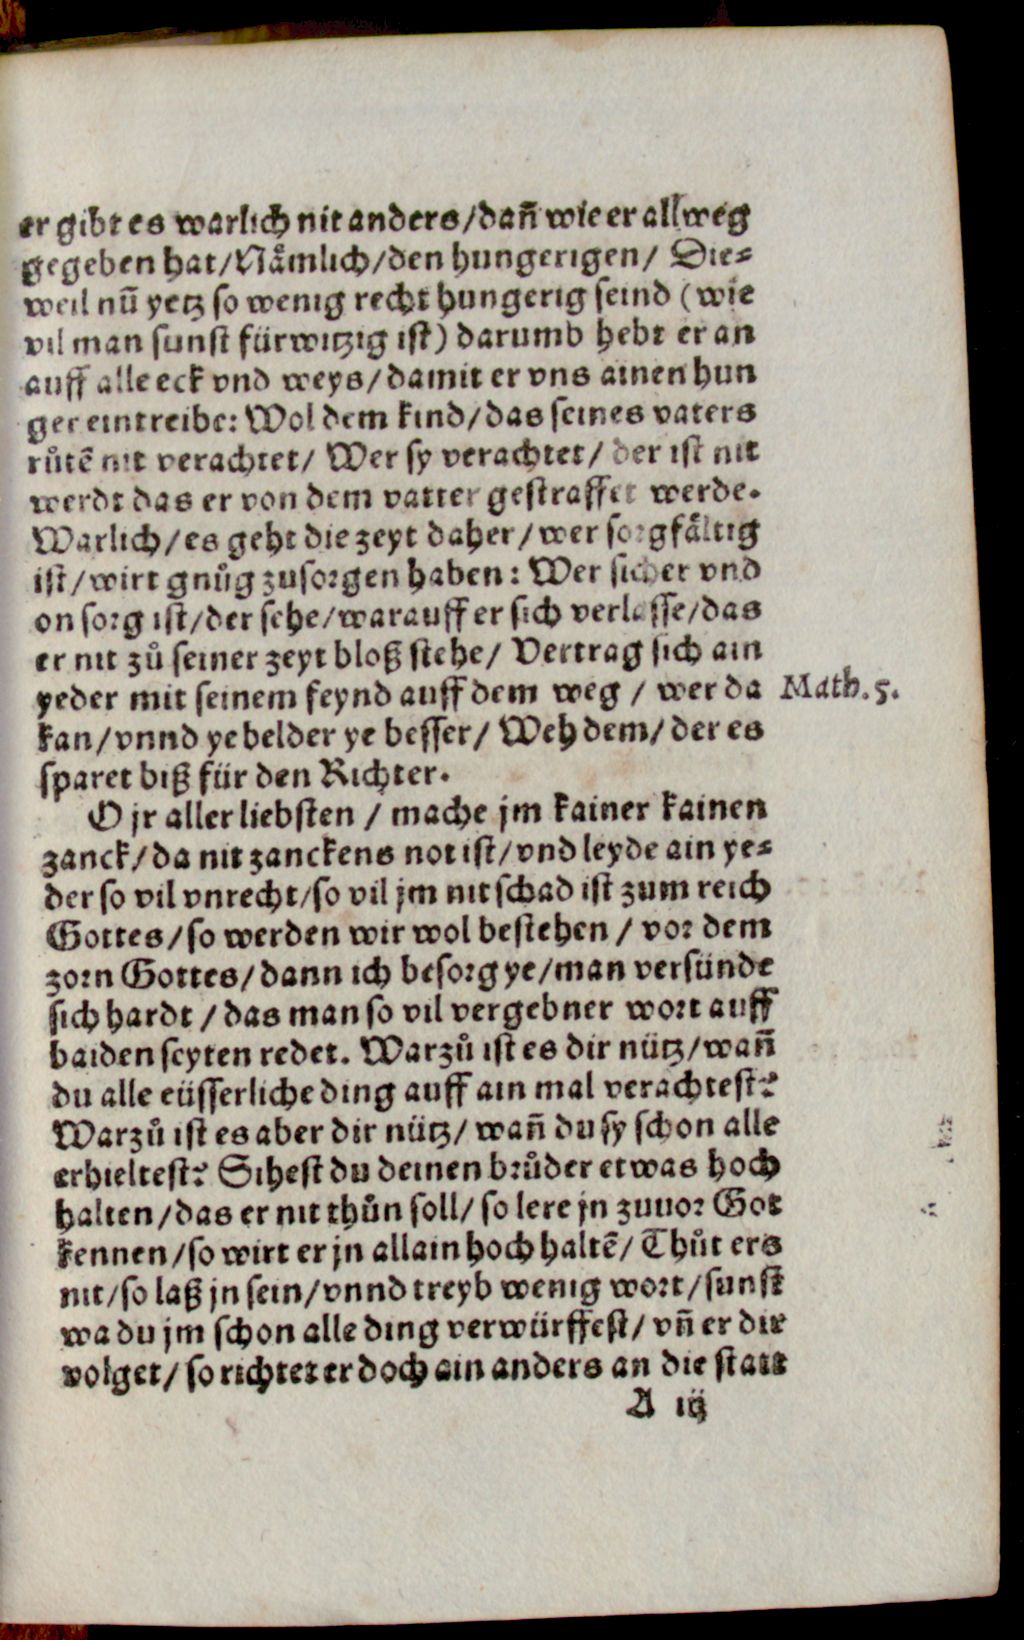 er gibt es warlich nit anders/dañ wie er allweg
gegeben hat/Nämlich/den hungerigen/ Die-
weil nū yetz so wenig recht hungerig seind (wie
vil man sunst fürwitzig ist) darumb hebt er an
auff alle eck vnd weys/damit er vns ainen hun
ger eintreibe: Wol dem kind/das seines vaters
růtē nit verachtet/ Wer sy verachtet/ der ist nit
werdt das er von dem vatter gestraffet werde.
Warlich/es geht die zeyt daher/wer sorgfältig
ist/wirt gnůg zusorgen haben: Wer sicher vnd
on sorg ist/der sehe/warauff er sich verlasse/das
er nit zů seiner zeyt bloß stehe/ Vertrag sich ain
yeder mit seinem feynd auff dem weg / wer da
Math. 5.
kan/vnnd ye belder ye besser/ Weh dem/ der es
sparet biß für den Richter.
O jr aller liebsten / mache jm kainer kainen
zanck/da nit zanckens not ist/vnd leyde ain ye-
der so vil vnrecht/so vil jm nit schad ist zum reich
Gottes/so werden wir wol bestehen / vor dem
zorn Gottes/dann ich besorg ye/man versünde
sich hardt / das man so vil vergebner wort auff
baiden seyten redet. Warzů ist es dir nütz/wañ
du alle eüsserliche ding auff ain mal verachtest?
Warzů ist es aber dir nütz/ wañ du sy schon alle
erhieltest? Sihest du deinen brůder etwas hoch
halten/das er nit thůn soll/ so lere jn zuuor Got
kennen/so wirt er jn allain hoch haltē/ Thůt ers
nit/so laß jn sein/vnnd treyb wenig wort/sunst
wa du jm schon alle ding verwürffest/ vñ er dir
volget/ so richtet er doch ain anders an die statt
A iij